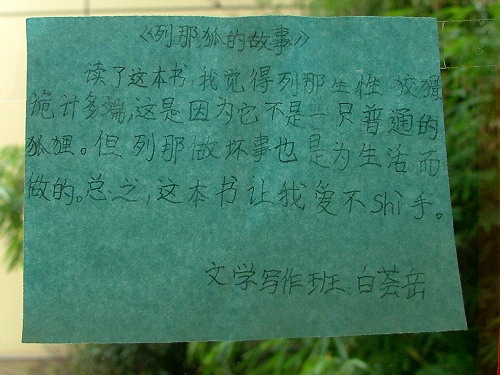 《列那狐的故事》
读了这本书,我觉得列那生性狡猾
诡计多端,这是因为它不是一只普通的
狐狸。但列那做坏事也是为生活而
做的。总之,这本书让我爱不shì手。
文学写作班 白荟岳